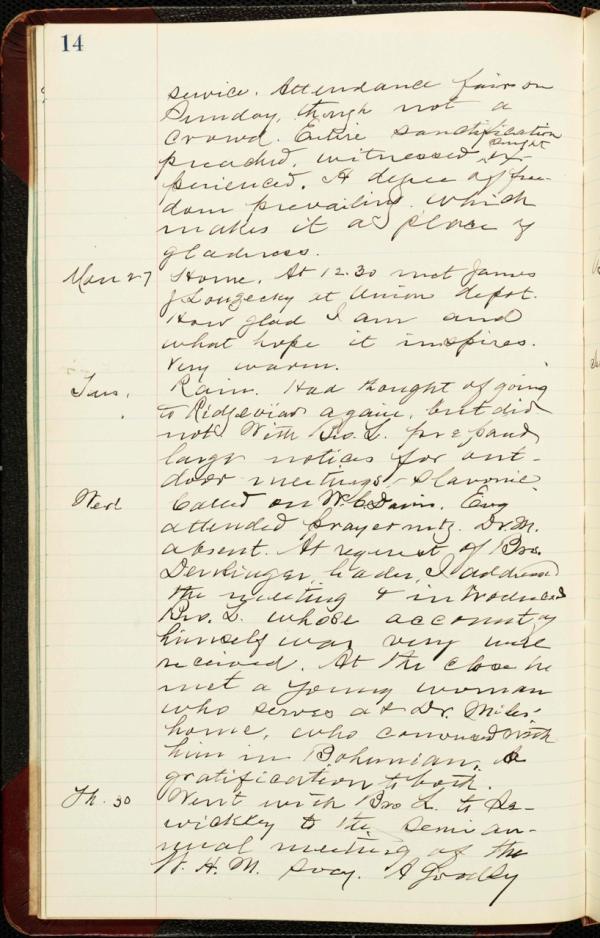 14
service. Attendance fair on
Sunday, though not a
crowd. Entire sanctification
preached, witnessed, sought ex-
perienced. A degree of free-
dom prevailing which
makes it a place of
gladness.
Mon 27 Home. At 12.30 met James
J at Union depot.
How glad I am and
what hope it inspires.
Very warm.
Tues. Rain. Had thought of going
to again, but did
not. With Bro. L. prepared
large notices for out-
door meetings - Slavonic.
Wed Called on W. C. Davis. Evg
attended prayer mtg. Dr. M.
absent. At request of Bro.
leader, I addressed
the meeting & introduced
Bro. L. whose account of
himself was very well
received. At the close he
met a young woman
who serves at Dr. Miles'
home, who conversed with
him in Bohemian, a
gratification to both.
Th. 30 Went with Bro L. to Se-
wickley to the semi an-
nual meeting of the
W. H. M. Socy. A goodly